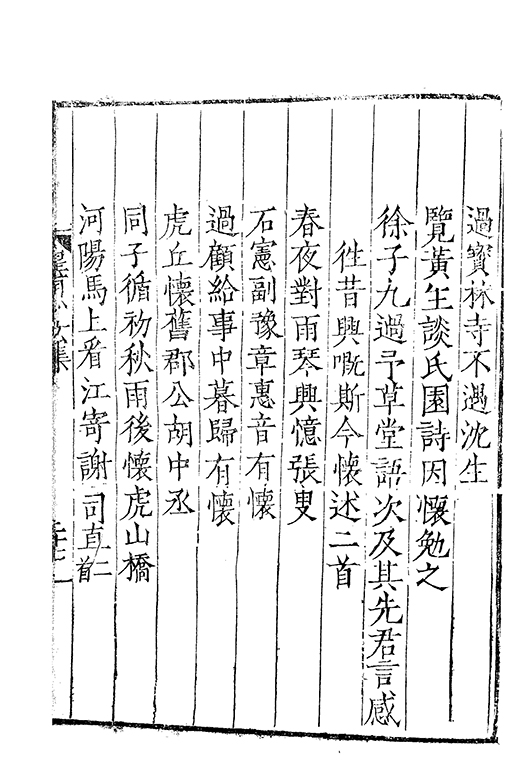 過寳林寺不遇沈生
覽黃生談氏園詩因懷勉之
徐子九過予草堂語次及其先君言感
徃昔興嘅斯今懷述二首
春夜對雨琴興憶張叟
石憲副豫章惠音有懷
過顧給事中暮歸有懷
虎丘懷舊郡公胡中丞
同子循初秋雨後懷虎山橋
河陽馬上看江寄謝司直二首